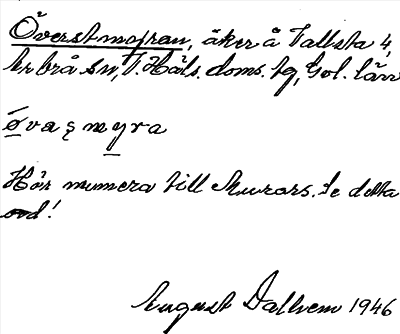 Överstmyran, åker å Vallsta 4,
Arbrå sn, V. Häls. doms. tg, Gvl. län
øvaşmyra
Hör numera till Murars. Se detta
ord!
August Dallvem 1946